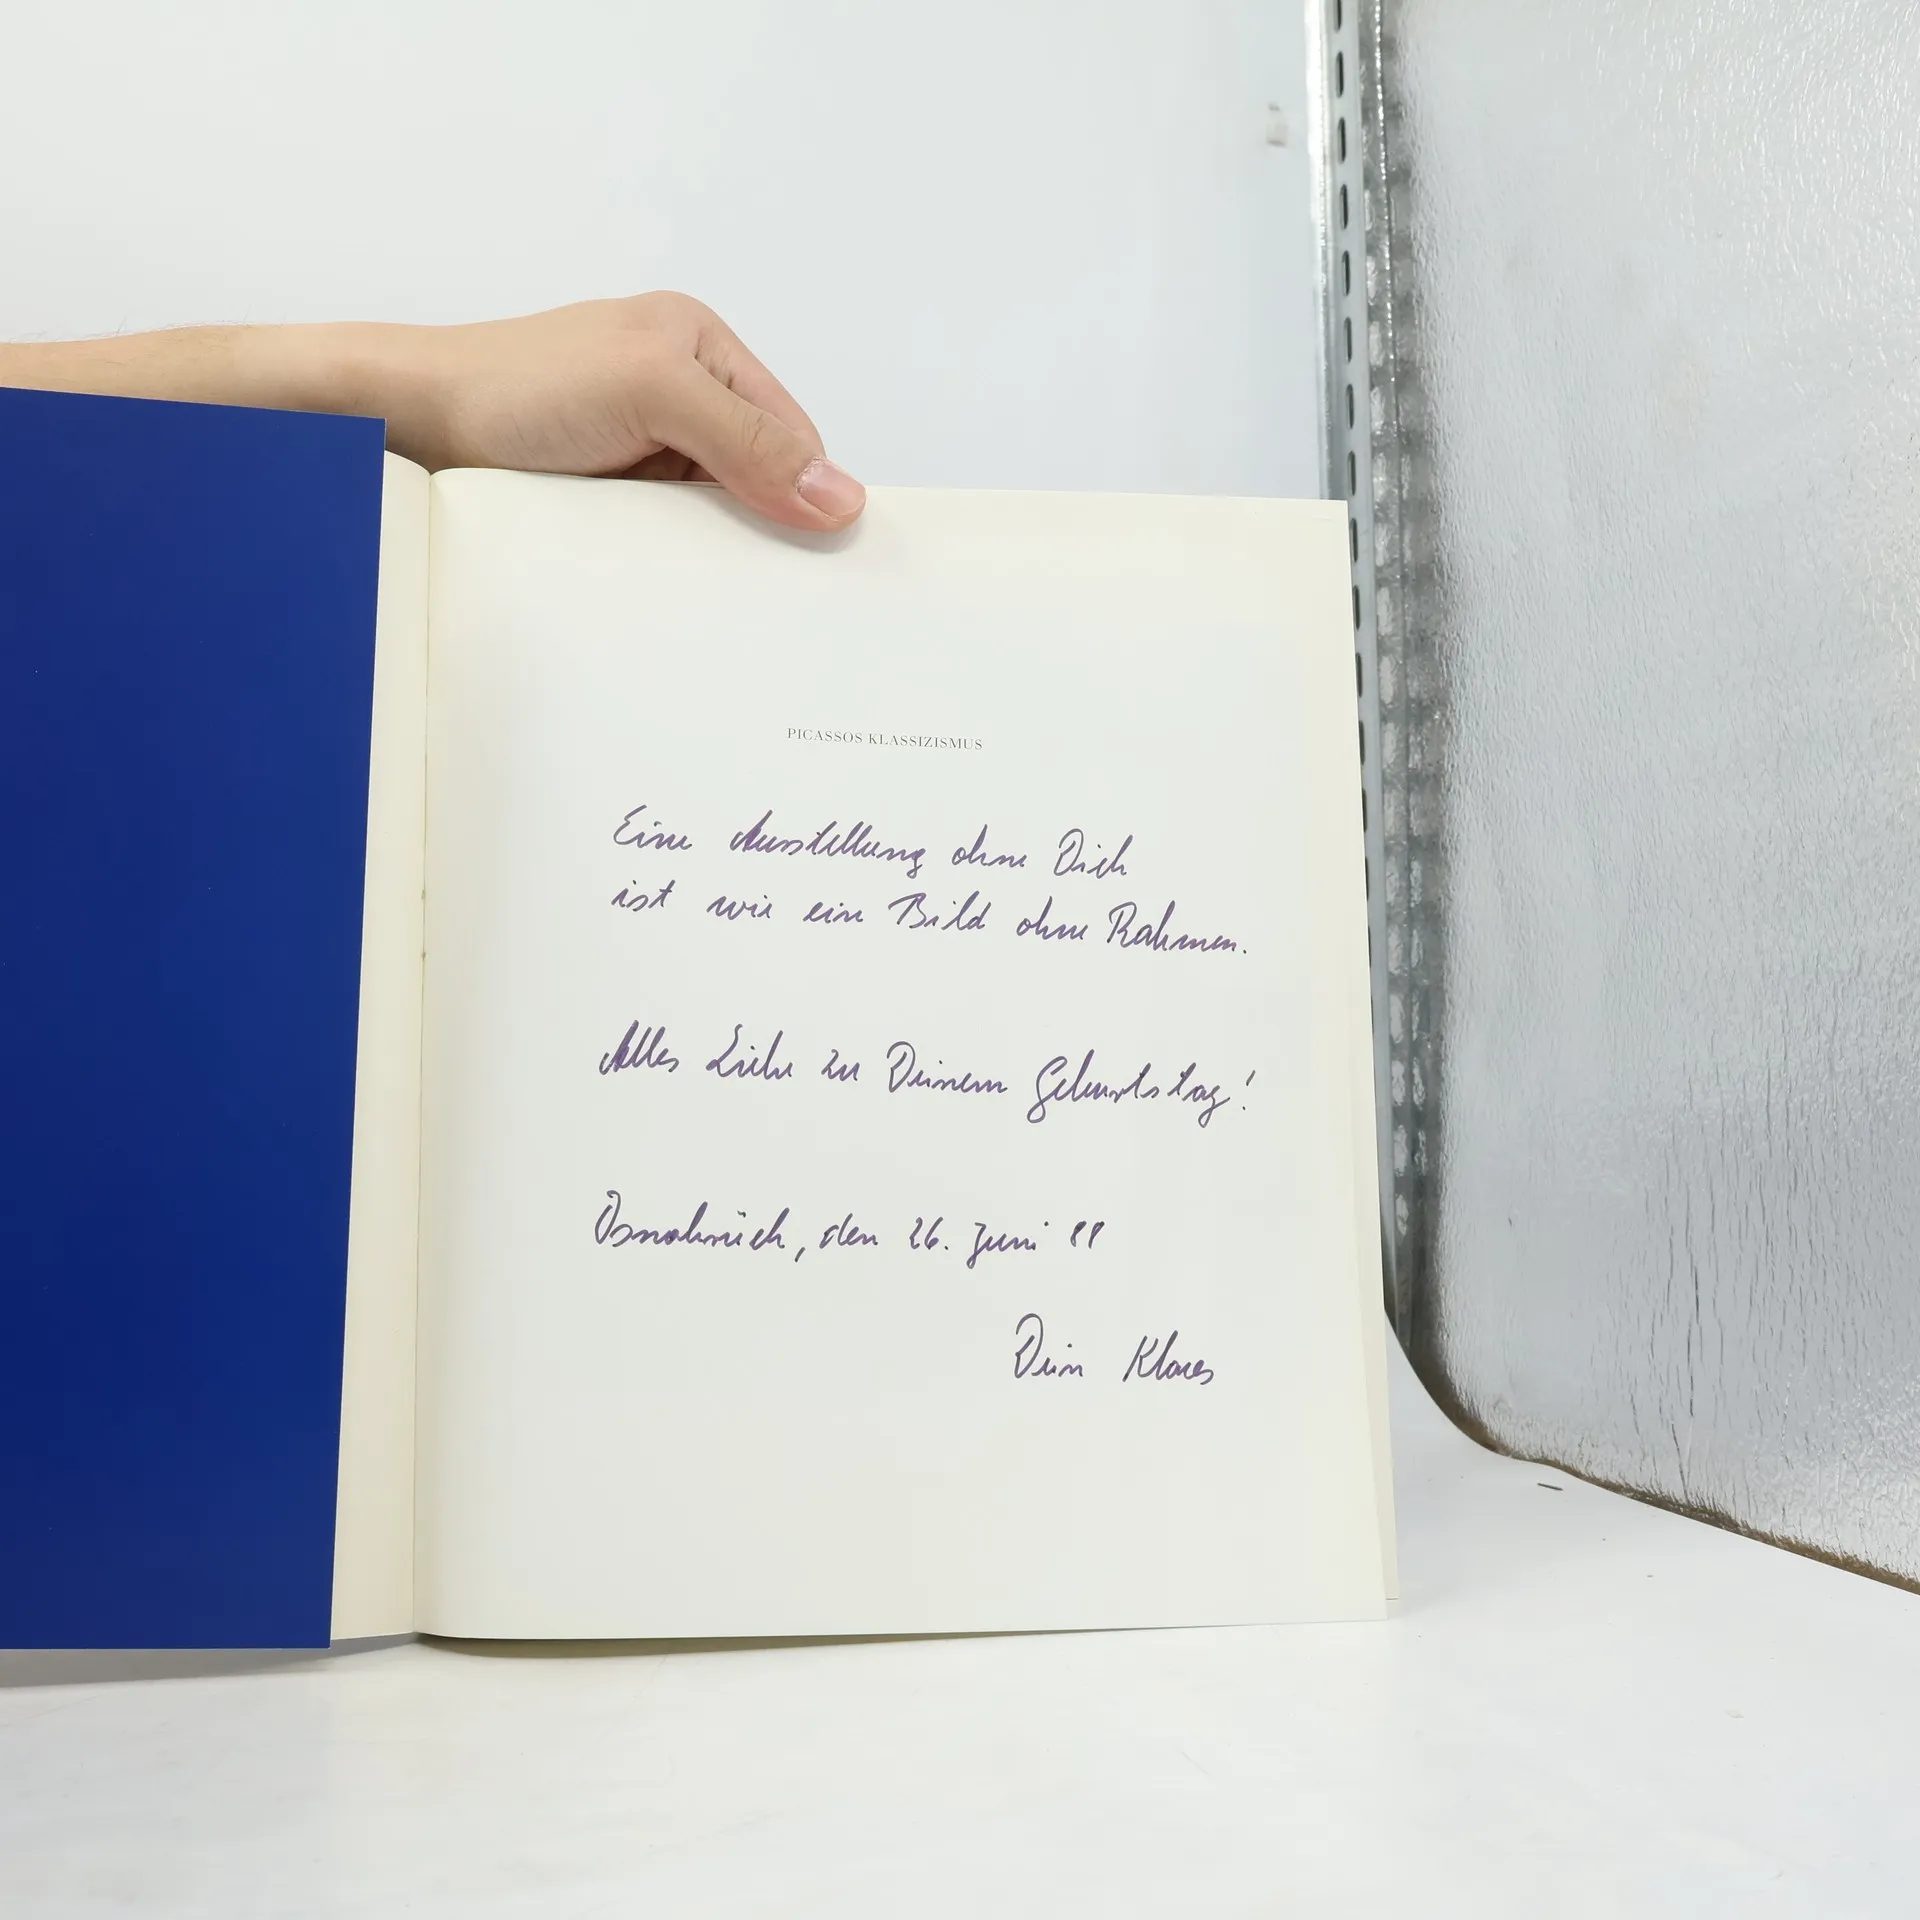 PICASSOS KLASSIZISMUS
Eine Ausstellung ohne Dich
ist wie ein Bild ohne Rahmen.
Alles Liebe zu Deinem Geburtstag!
Osnabrück, den 26. Juni 88
Dein Klaus